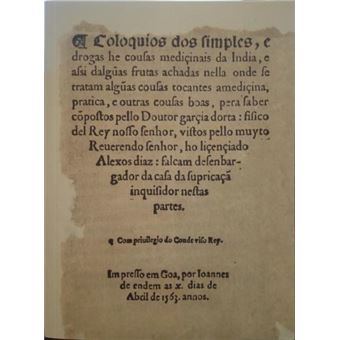 Coloquios dos simples, e
drogas he cousas mediçinais da India, e
assi dalgũas frutas achadas nella onde se
tratam algũas cousas tocantes amediçina,
pratica, e outras cousas boas, pera saber
cõpostos pello Doutor garçia dorta : fisico
del Rey nosso senhor, vistos pello muyto
Reuerendo senhor, ho liçençiado
Alexos diaz : falcam desenbar-
gador da casa da supricaçã
inquisidor nestas
partes.
¶ Com priuilegio do Conde viso Rey.
Impresso em Goa, por Ioannes
de endem as x. dias de
Abril de 1563. annos.